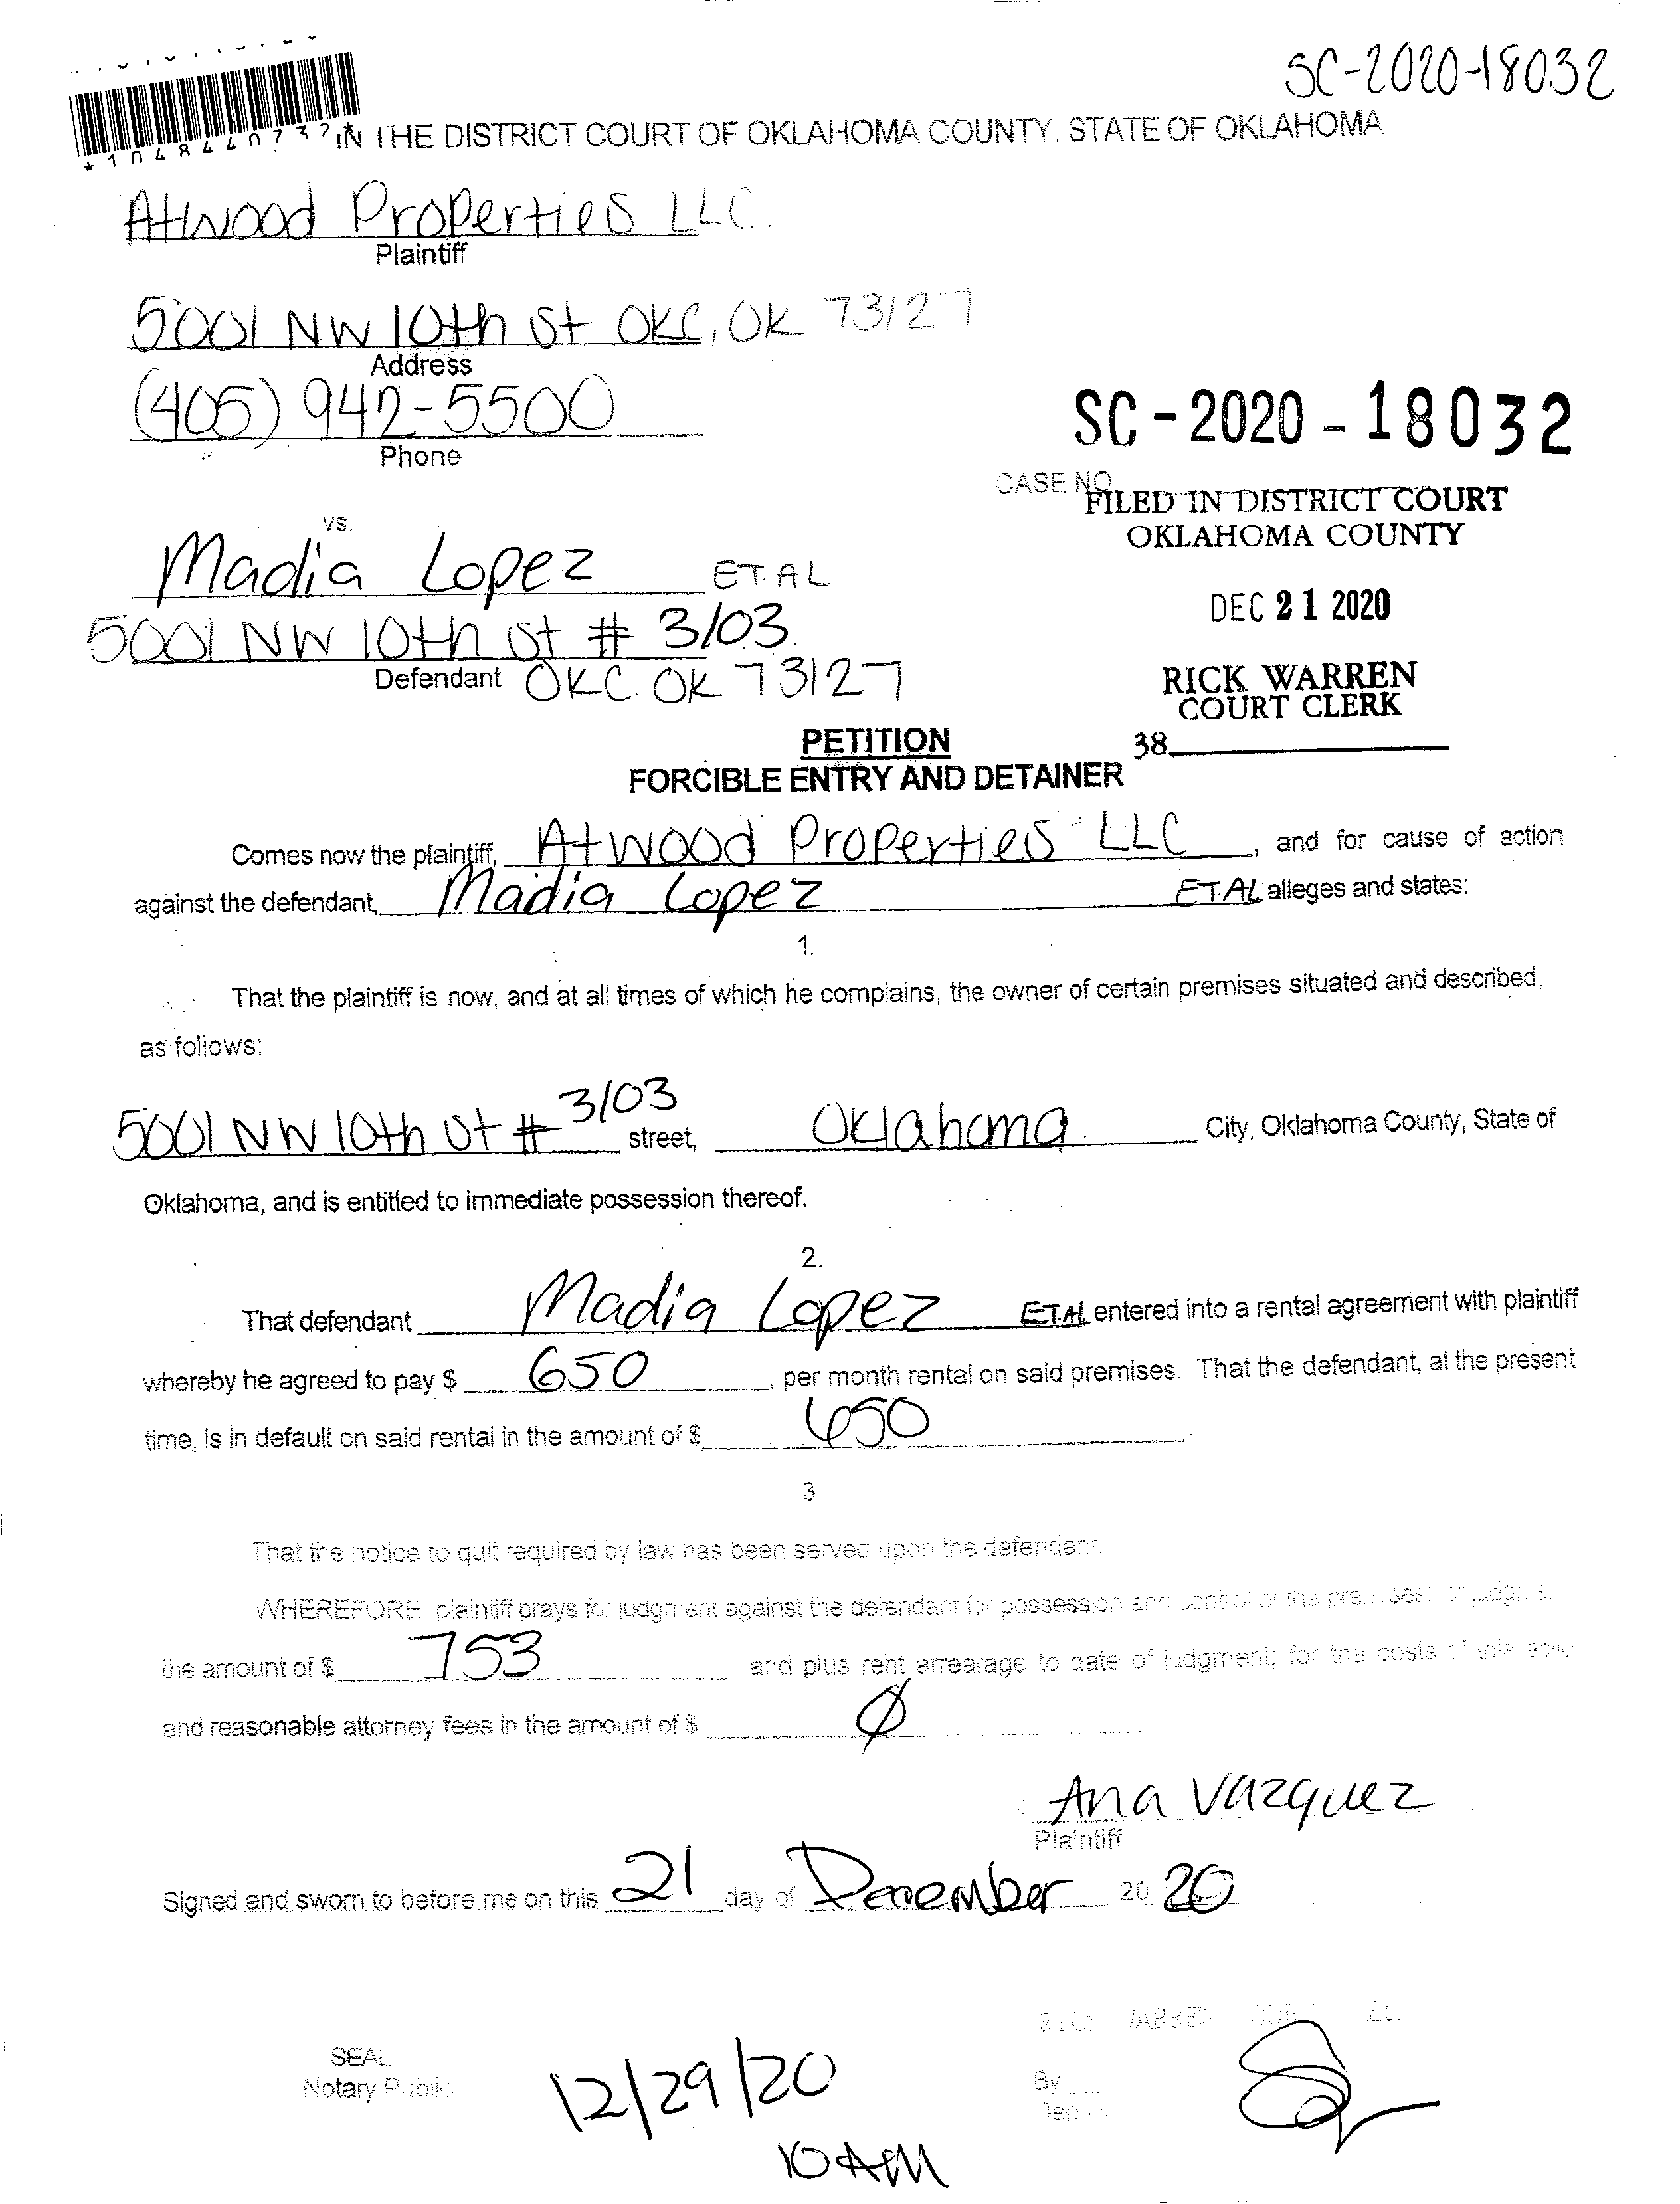 SC-2020-18032
IN THE DISTRICT COURT OF OKLAHOMA COUNTY, STATE OF OKLAHOMA
Atwood Properties LLC.
Plaintiff
5001 NW 10th St OKC, OK 73127
Address
(405) 942-5500
Phone
SC-2020-18032
CASE NO.
FILED IN DISTRICT COURT
OKLAHOMA COUNTY
DEC 21 2020
RICK WARREN
COURT CLERK
38
vs.
Madia Lopez ET.AL
5001 NW 10th St # 3/03
Defendant OKC. OK 73127
PETITION
FORCIBLE ENTRY AND DETAINER
Comes now the plaintiff, Atwood Properties LLC, and for cause of action
against the defendant, Madia Lopez ET.AL alleges and states:
1.
That the plaintiff is now, and at all times of which he complains, the owner of certain premises situated and described,
as follows:
5001 NW 10th St # 3/03 street, Oklahoma City, Oklahoma County, State of
Oklahoma, and is entitled to immediate possession thereof.
2.
That defendant Madia Lopez ET.AL entered into a rental agreement with plaintiff
whereby he agreed to pay $ 650, per month rental on said premises. That the defendant, at the present
time, is in default on said rental in the amount of $ 650
3
That the notice to quit required by law has been served upon the defendant.
WHEREFORE, plaintiff prays for judgment against the defendant for possession and control of the
the amount of $ 753 and plus rent arrearage to date of judgment; for the costs of
and reasonable attorney fees in the amount of $ Ø
Ana Vazquez
Plaintiff
Signed and sworn to before me on this 21 day of December 20 20
SEAL
Notary Public
By
12/29/20
10 AM